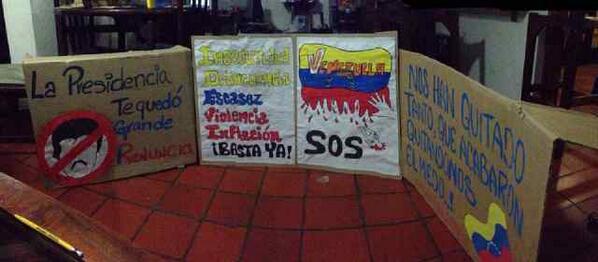 La Presidencia
Te quedó
Grande
Renuncia
Inseguridad
Delincuencia
Escasez
Violencia
Inflación
¡BASTA YA!
VENEZUELA
SOS
NOS HAN QUITADO
TANTO QUE ACABARON
QUITANDONOS
EL MIEDO..!!